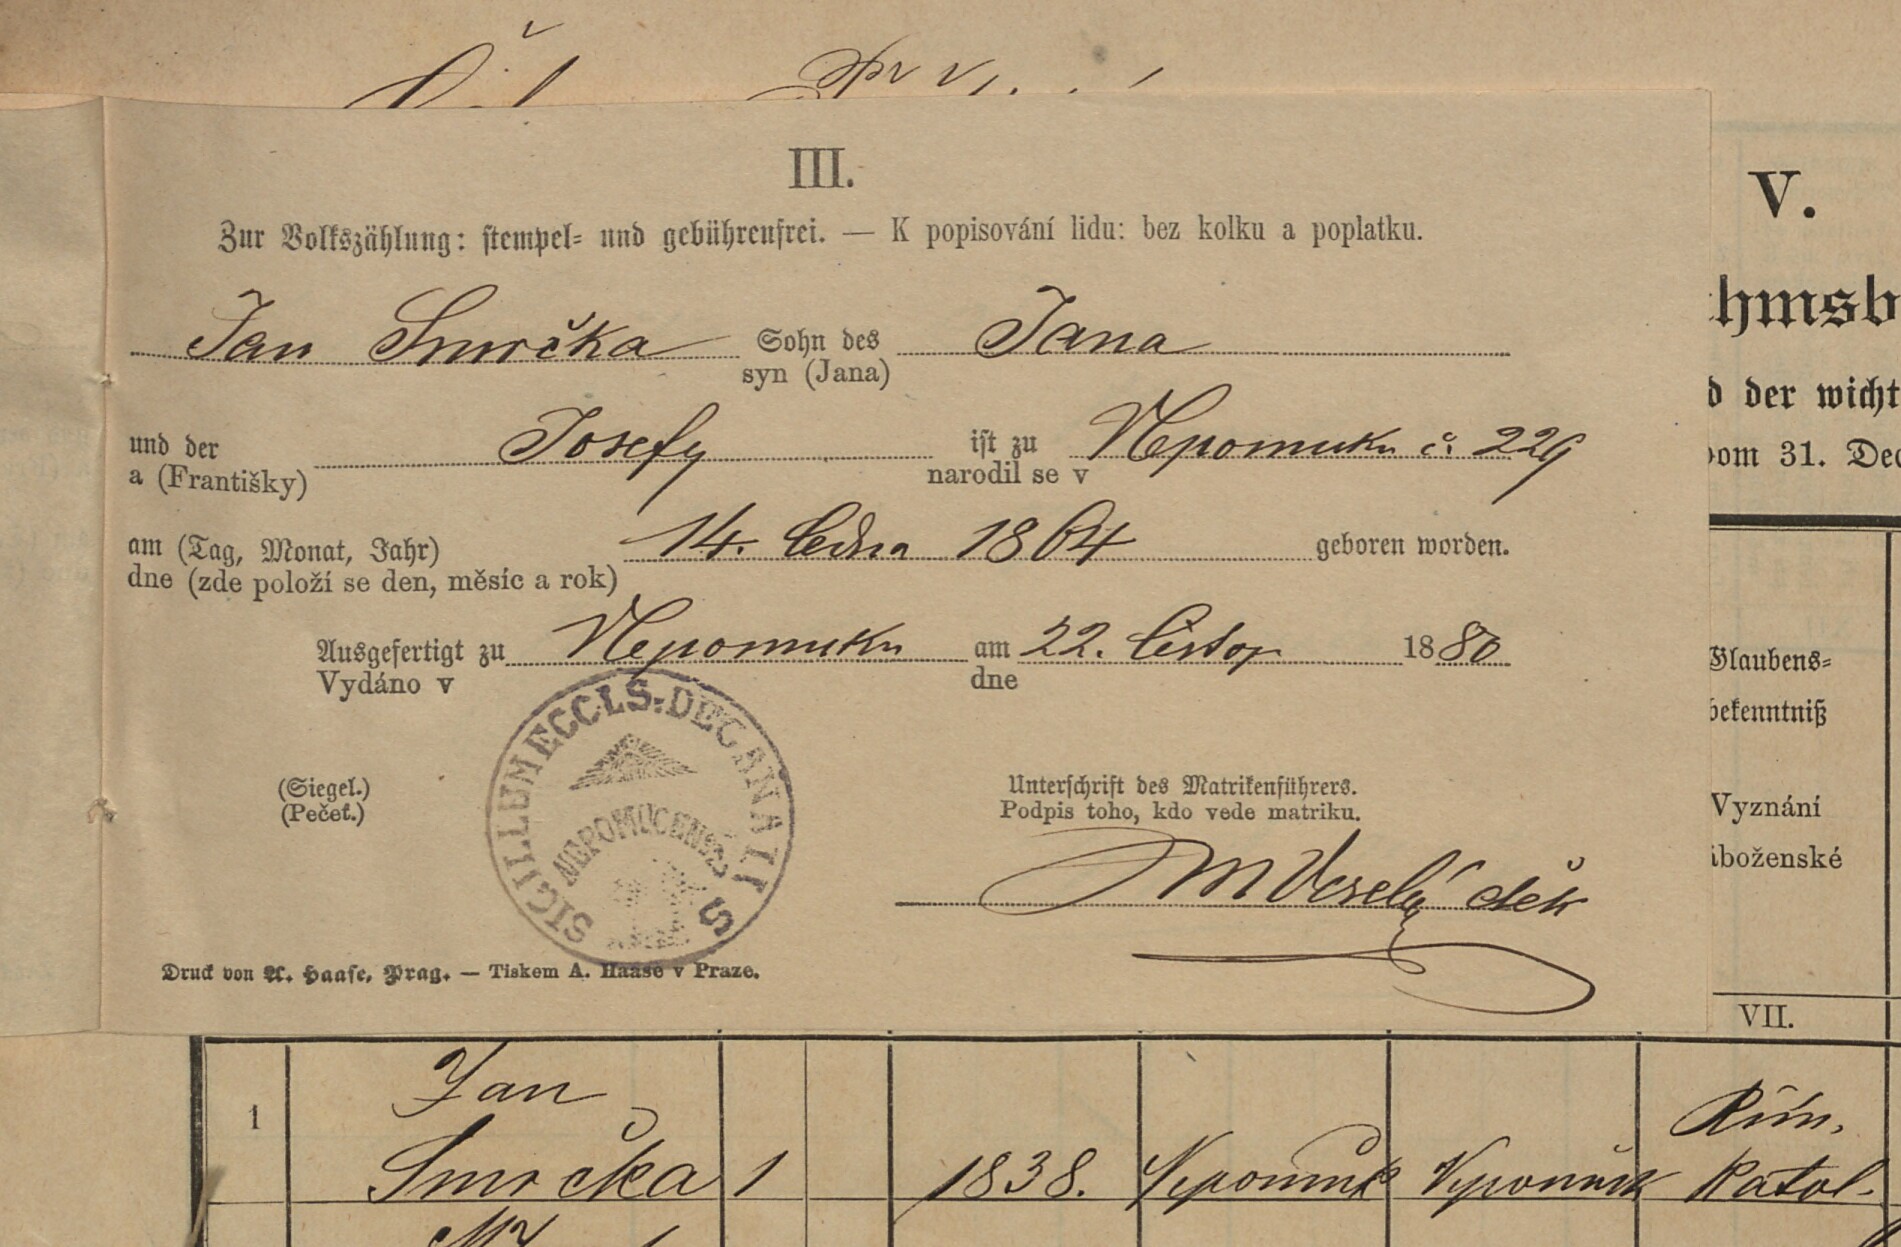 III.
Zur Volkszählung: stempel- und gebührenfrei. — K popisování lidu: bez kolku a poplatku.
Jan Smrčka Sohn des Jana
syn (Jana)
und der Josefy ist zu Nepomuku č. 229
a (Františky) narodil se v
am (Tag, Monat, Jahr) 14. ledna 1864 geboren worden.
dne (zde položí se den, měsíc a rok)
Ausgefertigt zu Nepomuku am 22. listop 1880
Vydáno v dne
SIGILLUM ECCLS. DECANALIS
NEPOMUCENSIS
(Siegel.)
(Pečeť.)
Unterschrift des Matrikenführers.
Podpis toho, kdo vede matriku.
Veselý děk
Druck von A. Haase, Prag. — Tiskem A. Haase v Praze.
V.
hmsb
d der wicht
vom 31. Dec
Glaubens-
bekenntniß
Vyznání
áboženské
VII.
1 Jan Smrčka 1 1838. Nepomuk Nepomuk Řím. Katol.